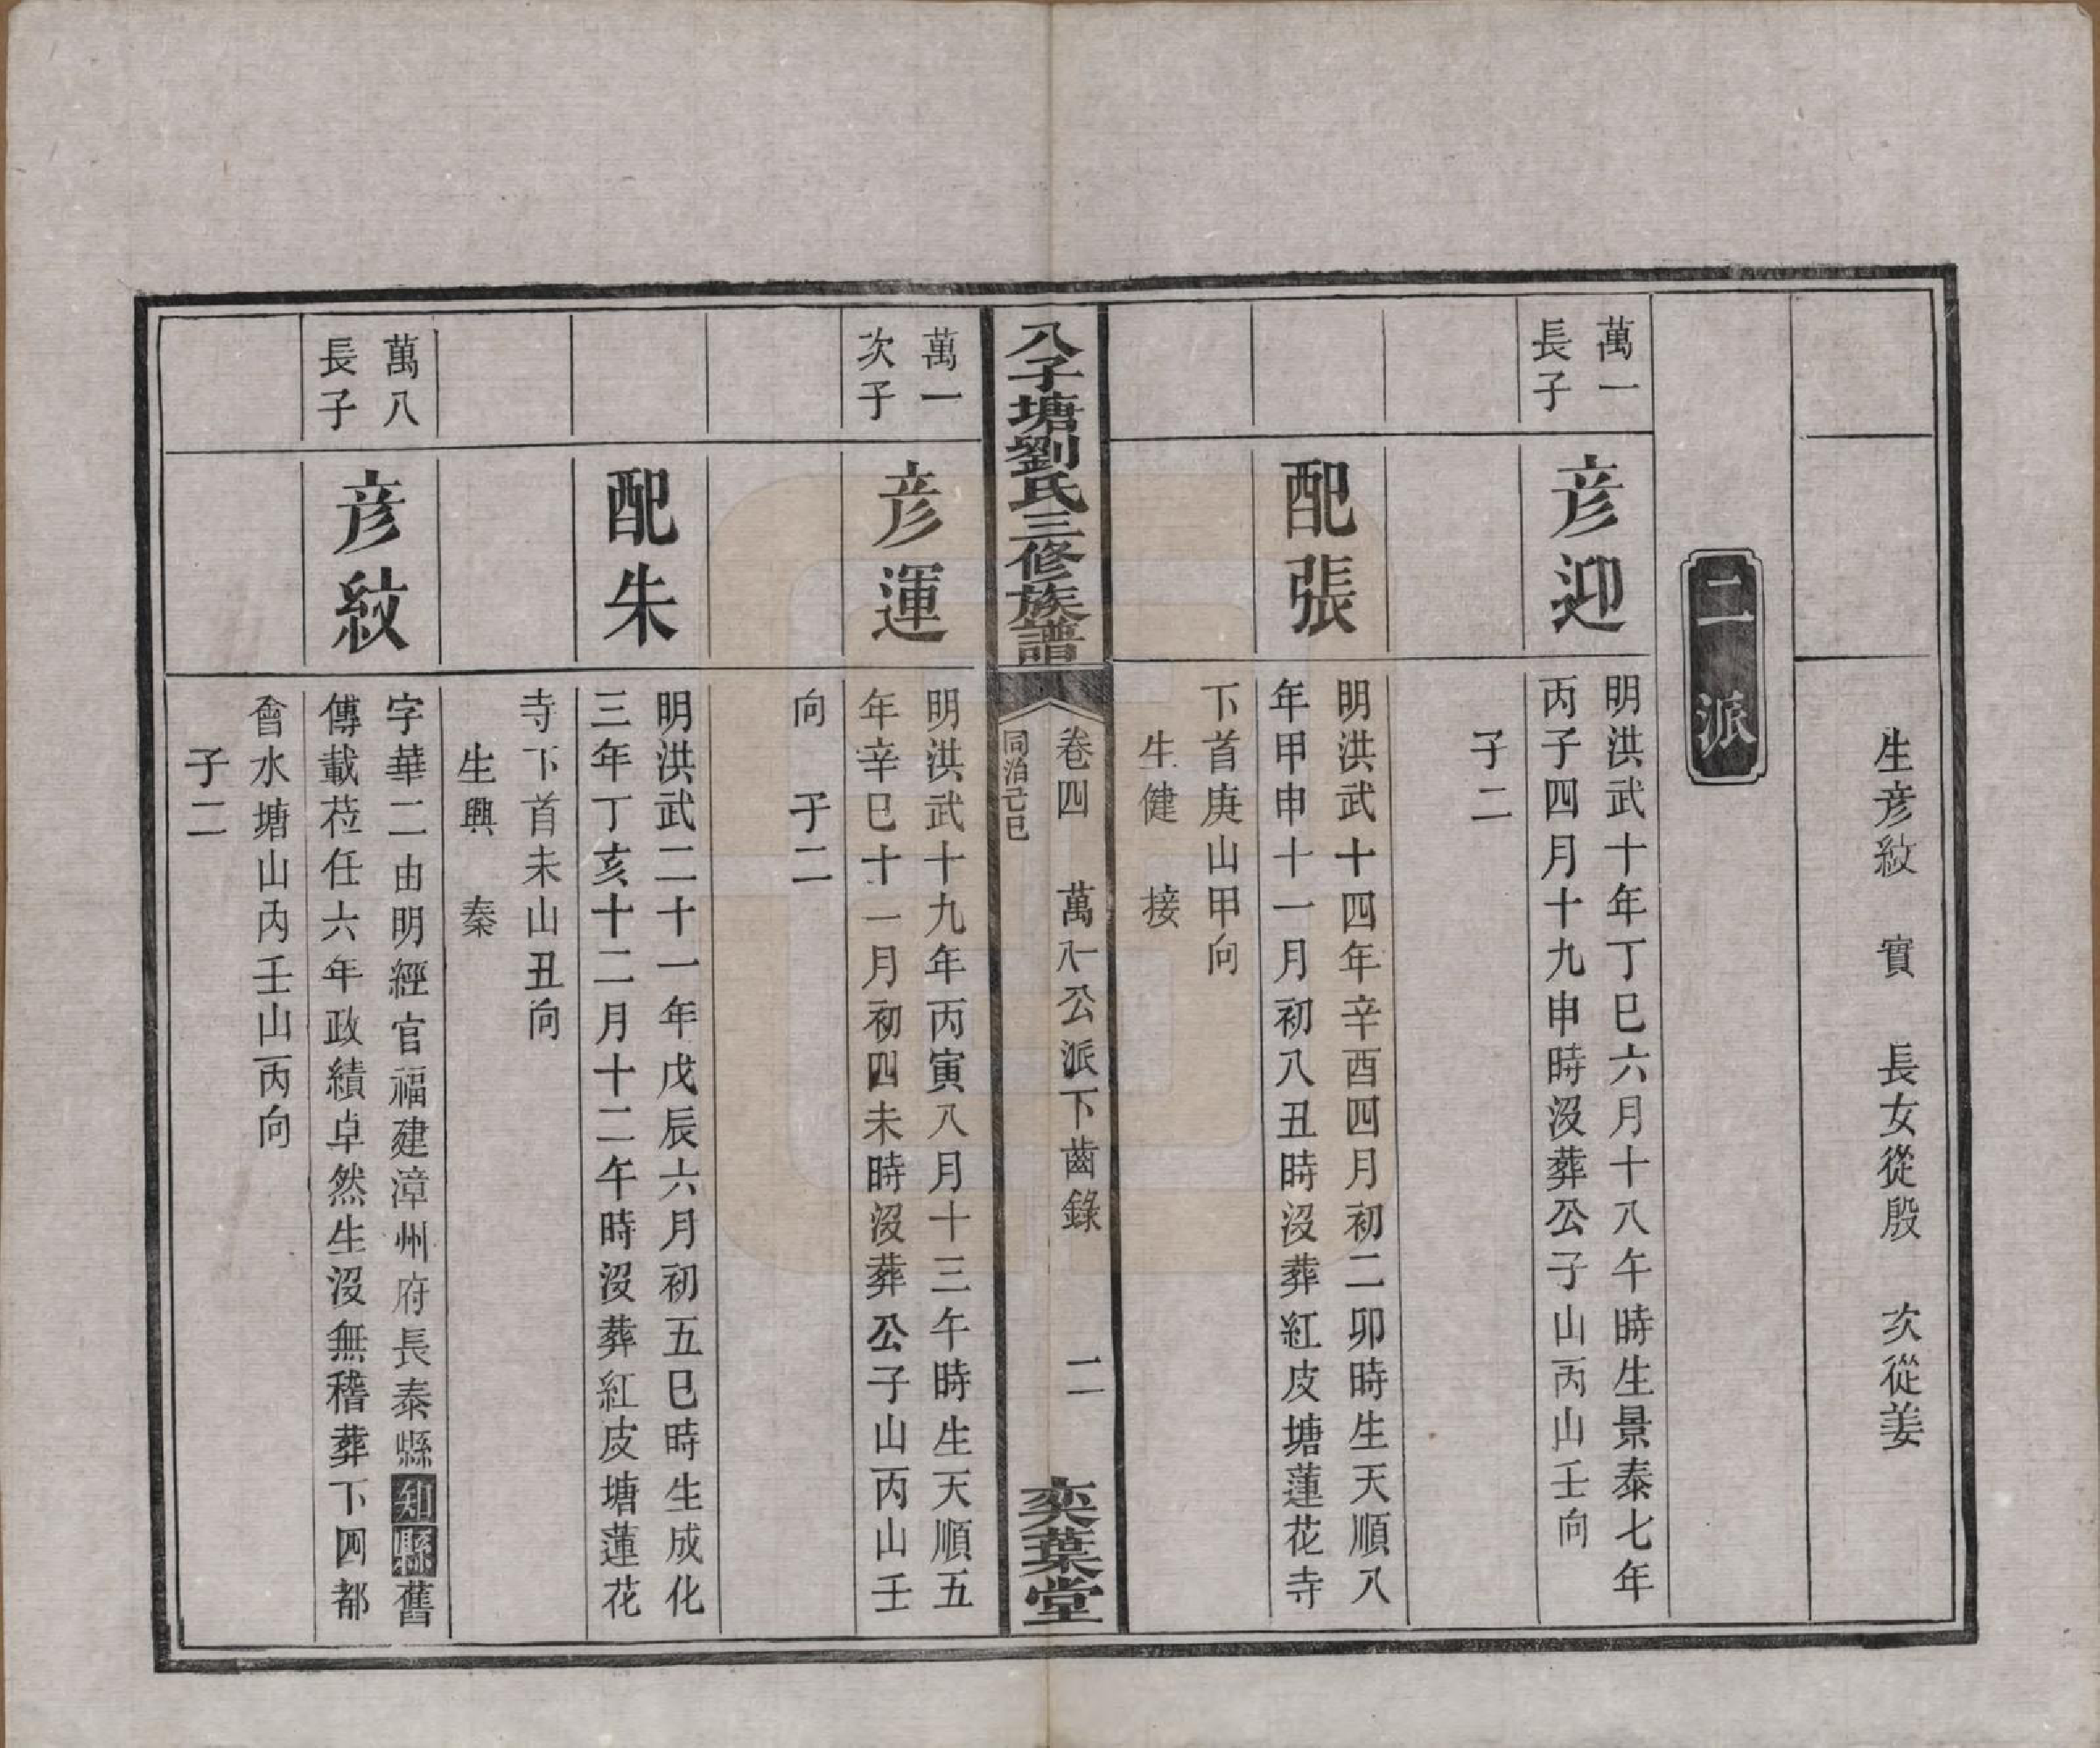 生彥紋　實　長女從殷　次從姜
二派
萬一
長子
彥迎
明洪武十年丁巳六月十八午時生景泰七年
丙子四月十九申時沒葬公子山丙山壬向
子二
配張
明洪武十四年辛酉四月初二卯時生天順八
年甲申十一月初八丑時沒葬紅皮塘蓮花寺
下首庚山甲向
生健　接
八子塘劉氏三修族譜
卷四　萬一八公派下齒錄　二
同治己巳
奕葉堂
萬一
次子
彥運
明洪武十九年丙寅八月十三午時生天順五
年辛巳十一月初四未時沒葬公子山丙山壬
向　子二
配朱
明洪武二十一年戊辰六月初五巳時生成化
三年丁亥十二月十二午時沒葬紅皮塘蓮花
寺下首未山丑向
生興　秦
萬八
長子
彥紋
字華二由明經官福建漳州府長泰縣知縣舊
傳載蒞任六年政績卓然生沒無稽葬下四都
會水塘山內壬山丙向
子二